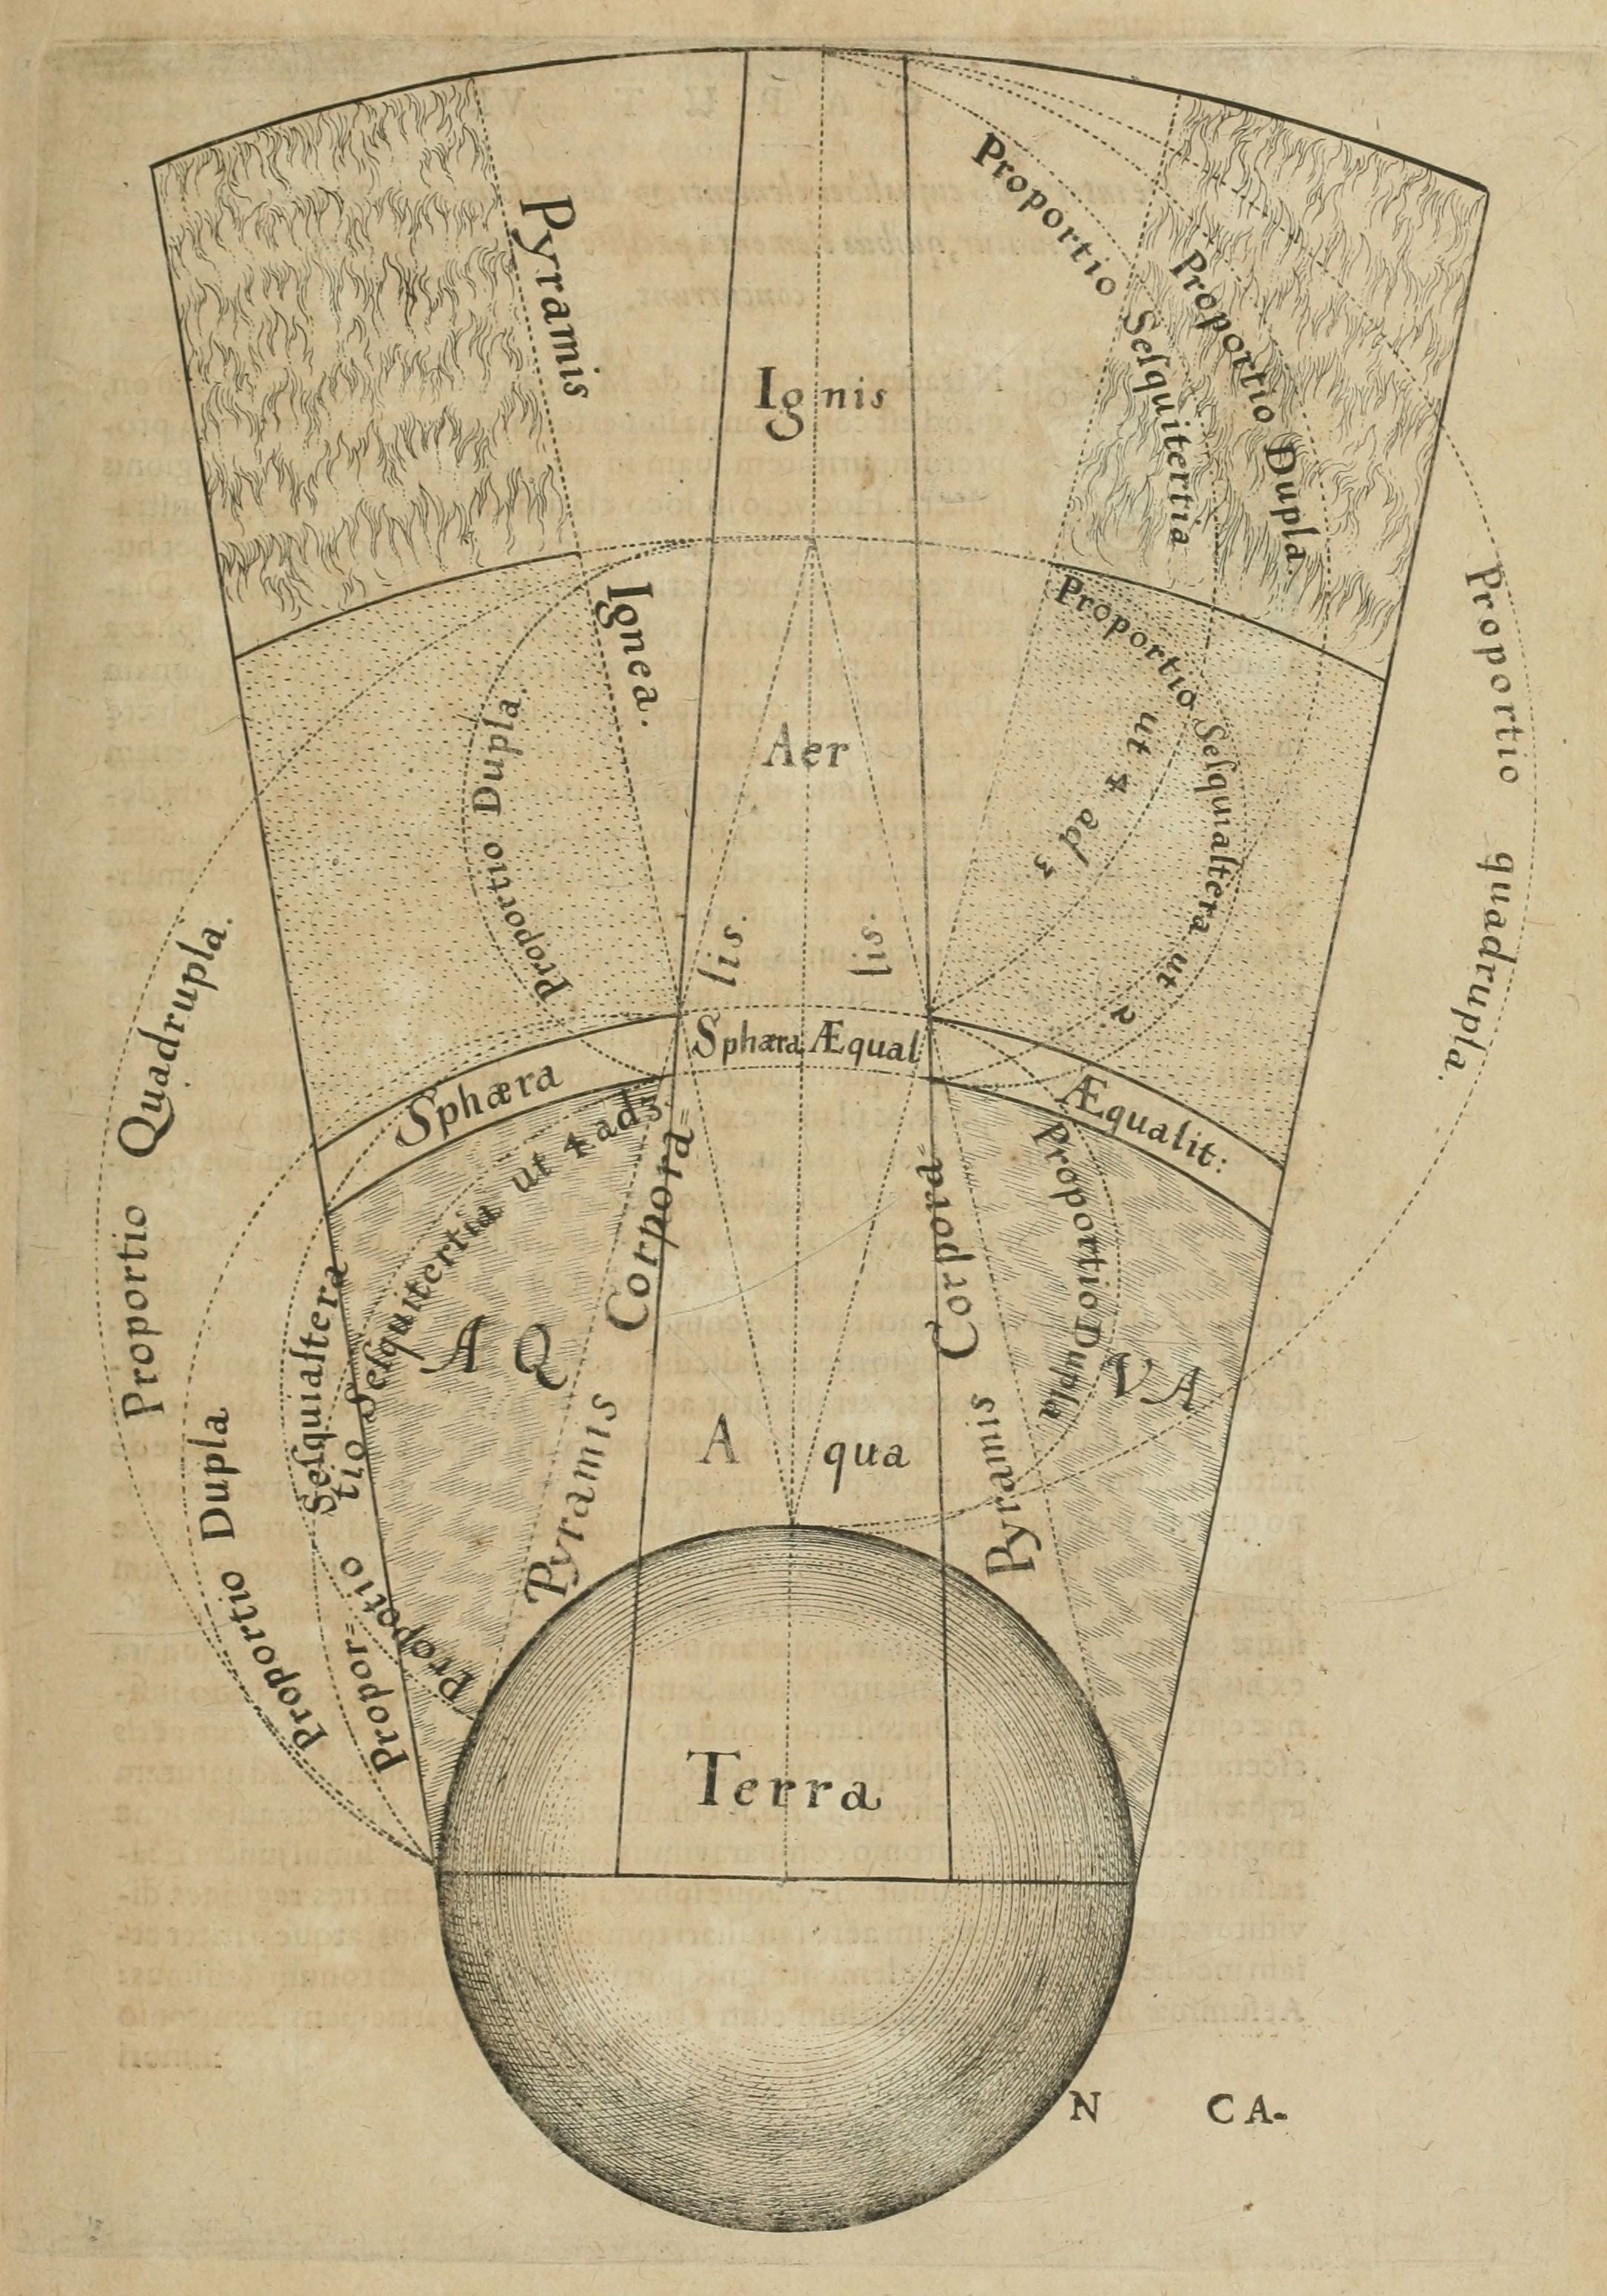 Pyramis
Ignea.
Ignis
Proportio Seſquitertia
Proportio Dupla.
Proportio quadrupla.
Aer
Proportio Dupla.
Proportio Seſquialtera ut
ut 4 ad 3
2.
lis. lis.
Sphæra Æqual
Sphæra
Æqualit:
Proportio Quadrupla.
Proportio Dupla
Propor=
tio Seſquitertia ut 4 ad 3.
Propotio Seſquialtera
A Q
V A
Pyramis Corpora=
Pyramis Corpora=
Proportio Dupla
A qua
Terra
N CA-